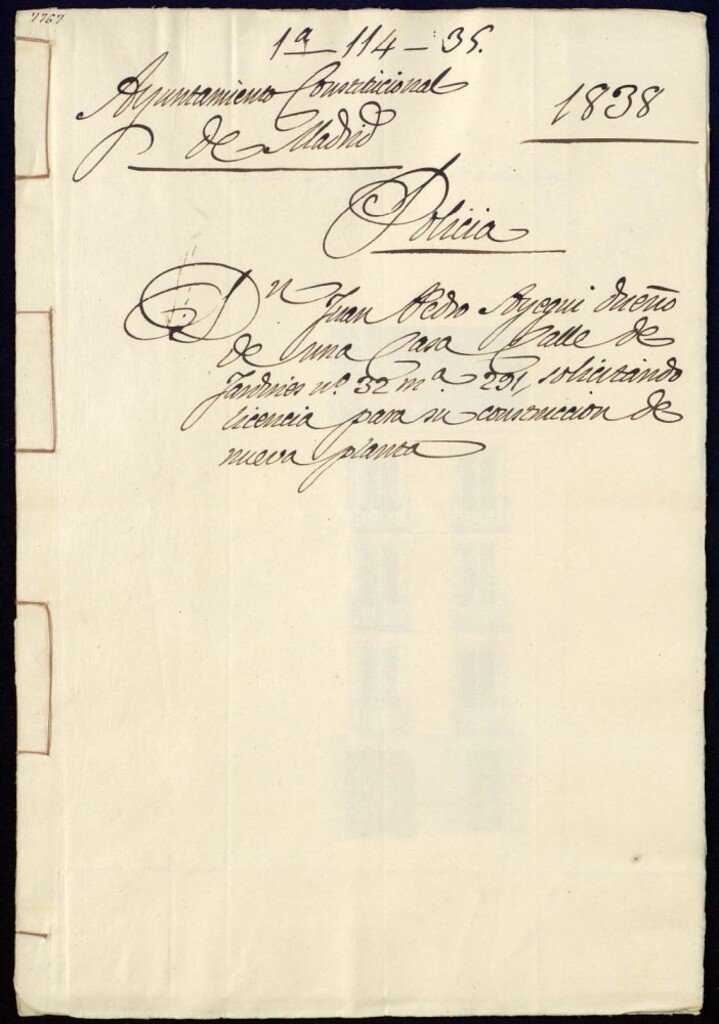 7767
1ª-114-35.
Ayuntamiento Constitucional
de Madrid
1838
Policia
Dn Juan Pedro Ayegui dueño
de una Casa Calle de
Jardines nº. 32 mª. 291, solicitando
licencia para su construccion de
nueva planta